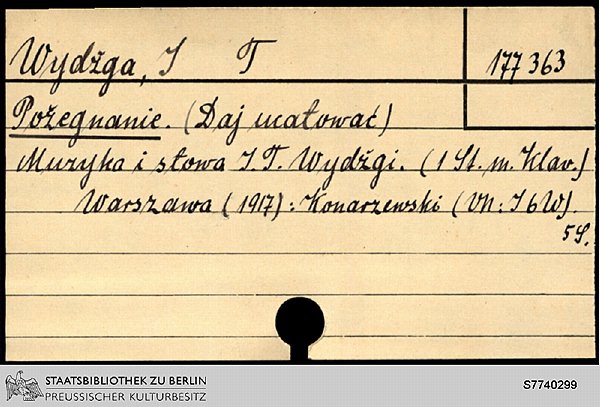 Wydżga, I T 177 363
Pożegnanie. (Daj ucałować)
Muzyka i słowa I. T. Wydżgi. (1 St. m. Klav.)
Warszawa (1917): Konarzewski (VN: I 6 W).
5 S.
STAATSBIBLIOTHEK ZU BERLIN
PREUSSISCHER KULTURBESITZ
S7740299